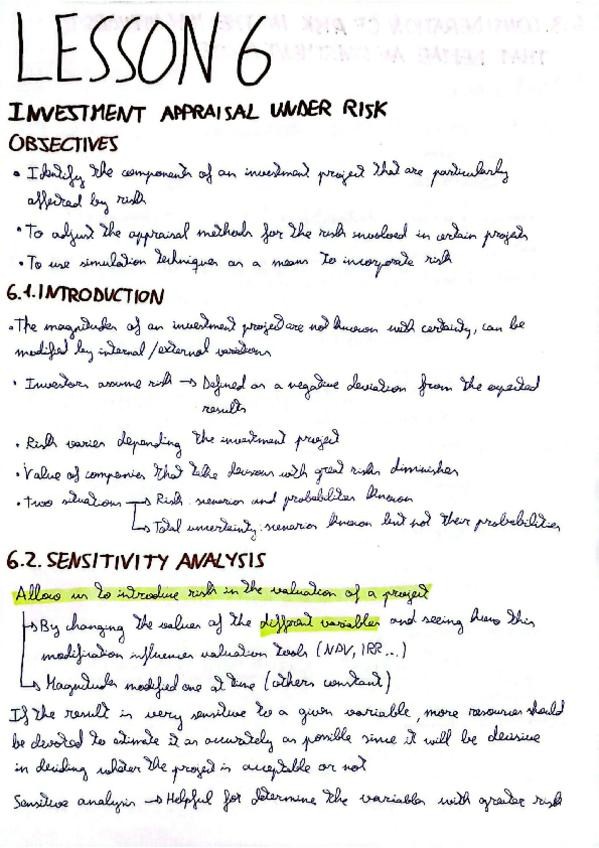 LESSON 6
INVESTMENT APPRAISAL UNDER RISK
OBJECTIVES
• Identify the components of an investment project that are particularly
affected by risk
• To adjust the appraisal methods for the risk involved in certain projects
• To use simulation techniques as a means to incorporate risk
6.1. INTRODUCTION
• The magnitudes of an investment project are not known with certainty, can be
modified by internal/external variations
• Investors assume risk → Defined as a negative deviation from the expected
results
• Risk varies depending the investment project
• Value of companies that take decisions with great risks diminishes
• Two situations → Risk: scenarios and probabilities known
↳ Total uncertainty: scenarios known but not their probabilities
6.2. SENSITIVITY ANALYSIS
Allow us to introduce risk in the valuation of a project
↳ By changing the values of the different variables and seeing how this
modification influences valuation tools (NPV, IRR...)
↳ Magnitudes modified one at time (others constant)
If the result is very sensitive to a given variable, more resources should
be devoted to estimate it as accurately as possible since it will be decisive
in deciding whether the project is acceptable or not
Sensitive analysis → Helpful for determine the variables with greater risk